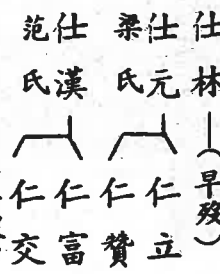 仕林
（早歿）
仕元
梁氏
仁立
仁贊
仕漢
范氏
仁富
仁交